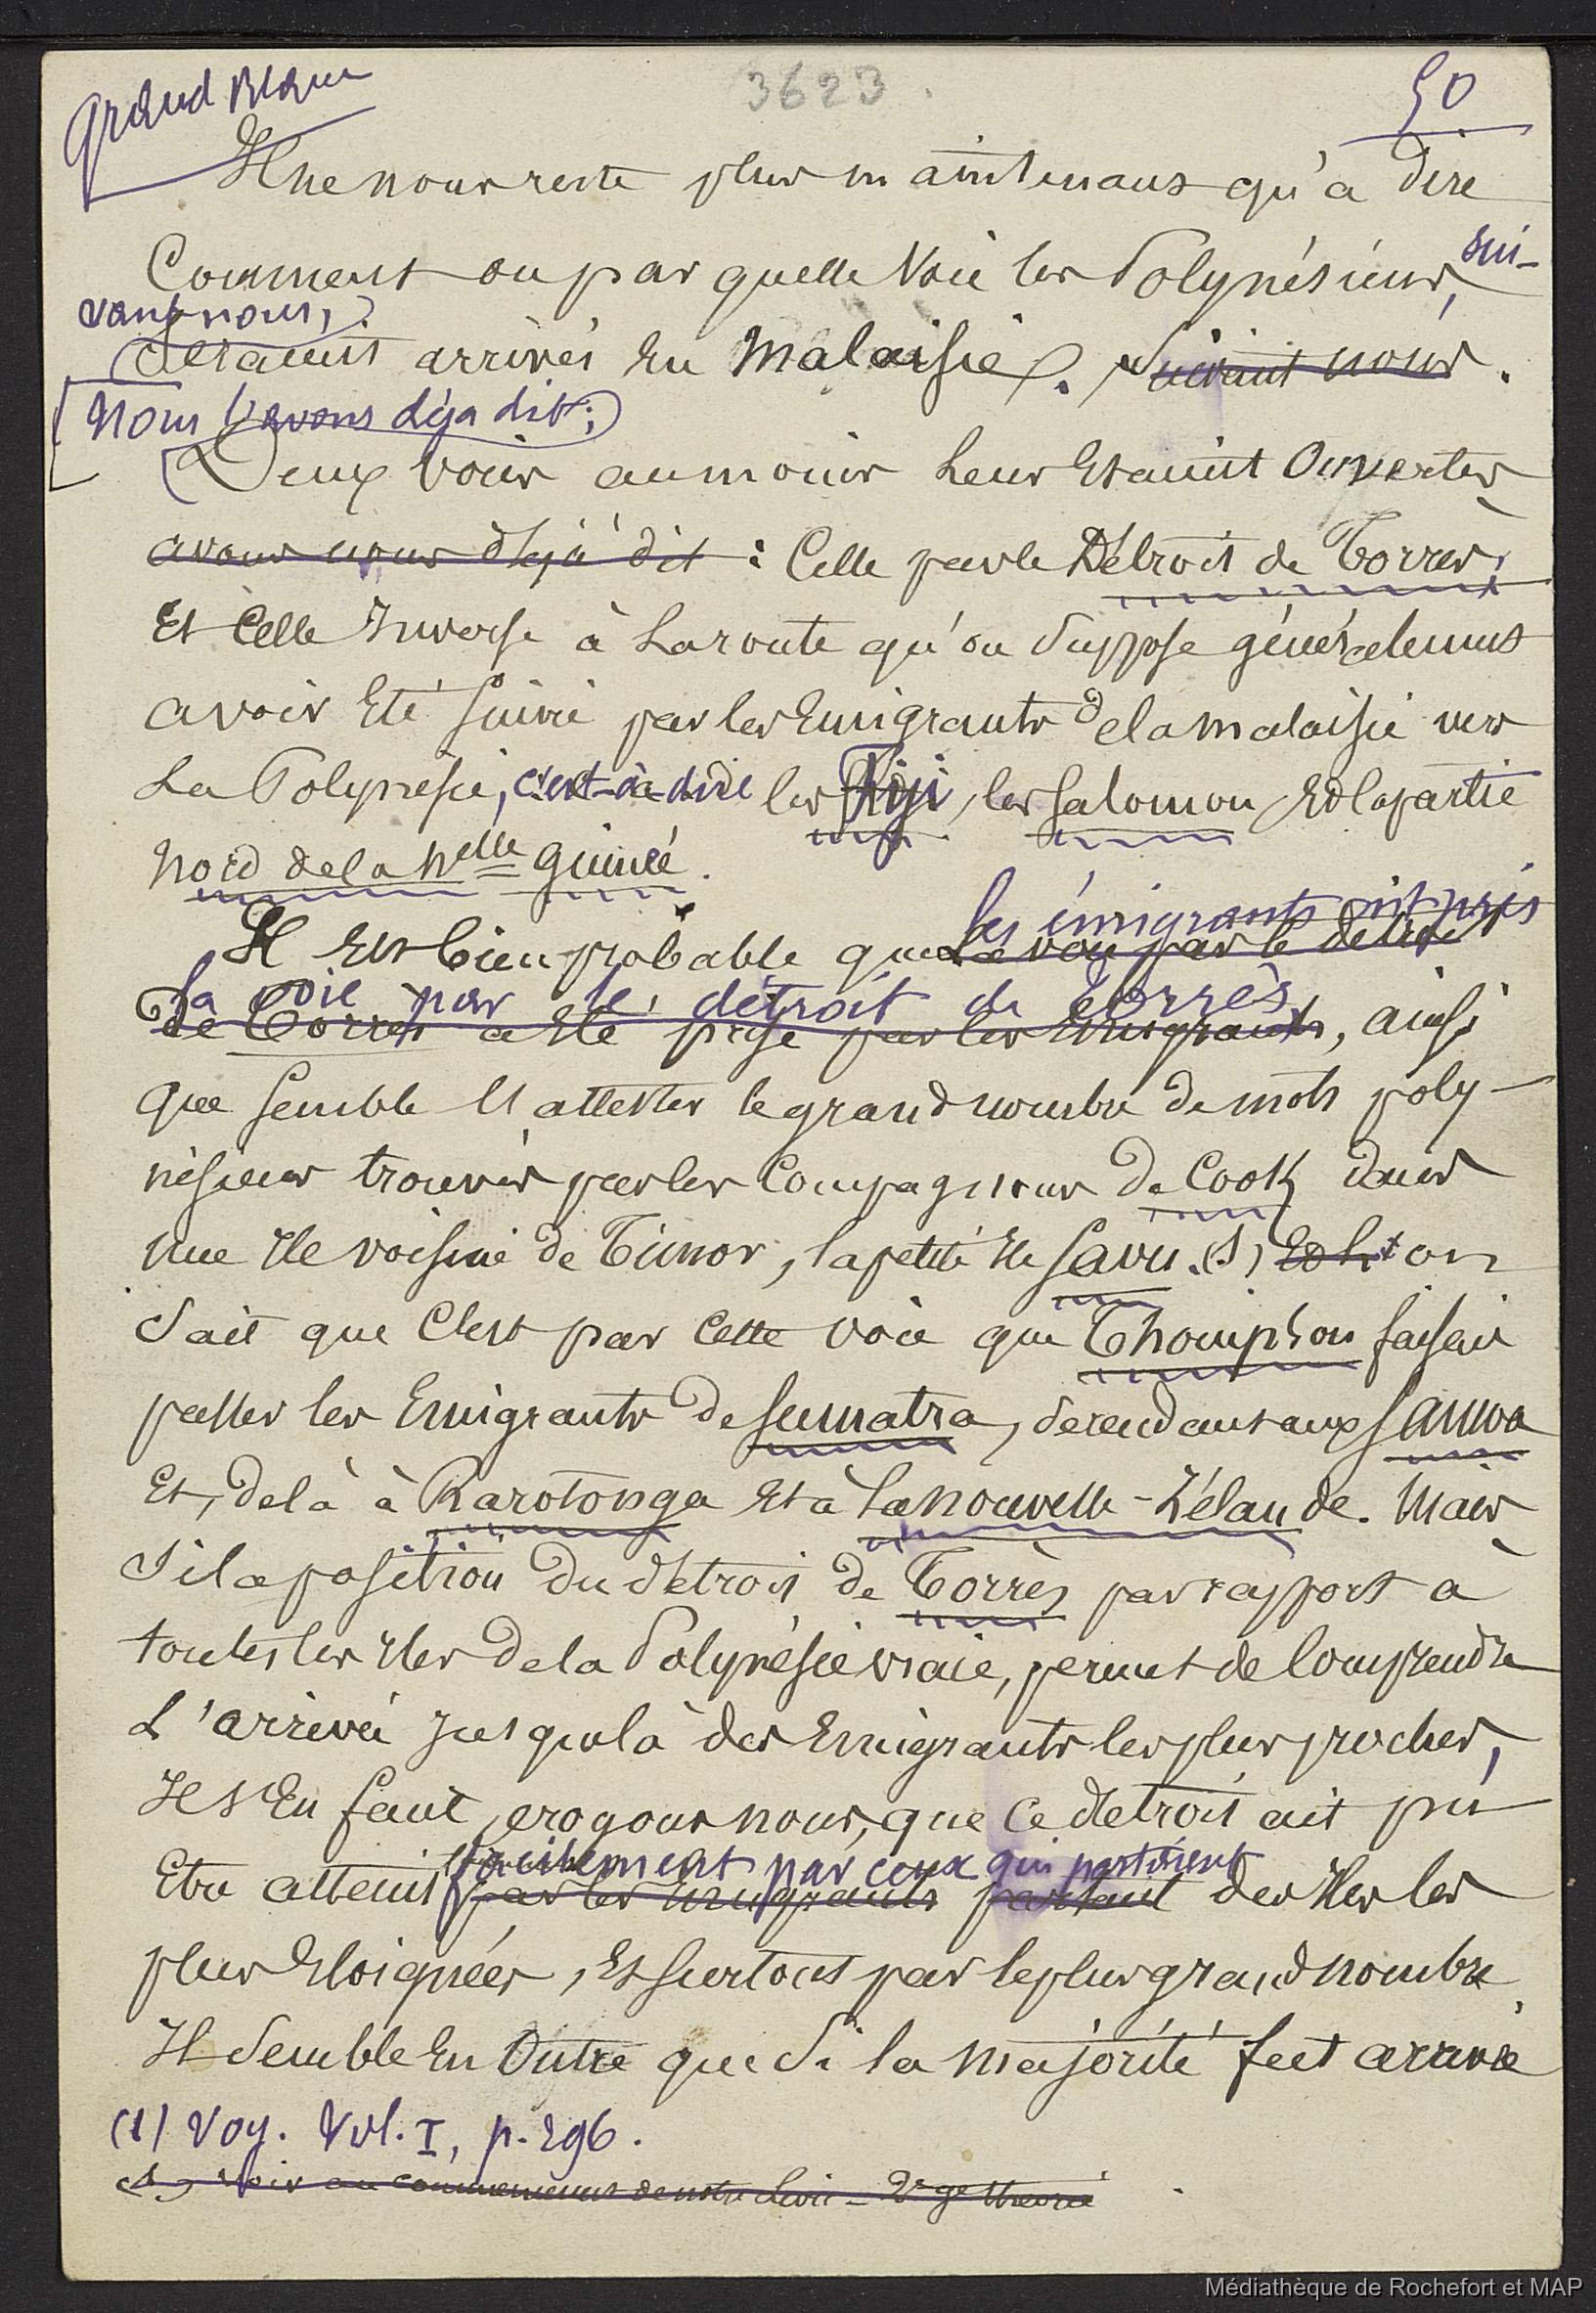 Grand blanc
3623.
50
Il ne nous reste plus maintenant qu'à dire
Comment ou par quelle voie les Polynésiens, sui-
vant nous,
Seraient arrivés en Malaisie. Suivant nous.
Nous l'avons déja dit;
Deux voies au moins leur étaient ouvertes
avons nous déjà dit : Celle par le Détroit de Torrès,
Et Celle Inverse à la route qu'on Suppose généralement
avoir été suivie par les Emigrants de la malaisie vers
La Polynésie, c'est-à-dire les Fiji, les Salomon et la partie
Nord de la Nelle guinée.
les émigrants ont pris
Il est bien probable que la voie par le détroit
la voie par le détroit de Torrès
de Torrès a été prise par les émigrants, ainsi
que semble l'attester le grand nombre de mots poly-
nésiens trouvés par les Compagnons de Cook dans
une Ile voisine de Timor, la petite Ile Savu. (1) Et l' on
Sait que C'est par Cette voie que Thompson faisait
passer les Emigrants de Sumatra, se rendant aux Samoa
Et, de là à Rarotonga et à la nouvelle-Zélande. Mais
Si la position du détroit de Torrès par rapport à
toutes les Iles de la Polynésie vraie, permet de Comprendre
L'arrivée jusque là des Emigrants les plus proches,
Il S'En faut, croyons nous, que Ce détroit ait pu
facilement par ceux qui partirent
Etre atteint par les émigrants partant des Iles les
plus Eloignées, Et surtout par le plus grand nombre.
Il Semble En Outre que Si la majorité fut arrivée
(1) Voy. Vol. I, p. 296.
(1) Voir au commencement de notre Livre - 2e théorie
Médiathèque de Rochefort et MAP